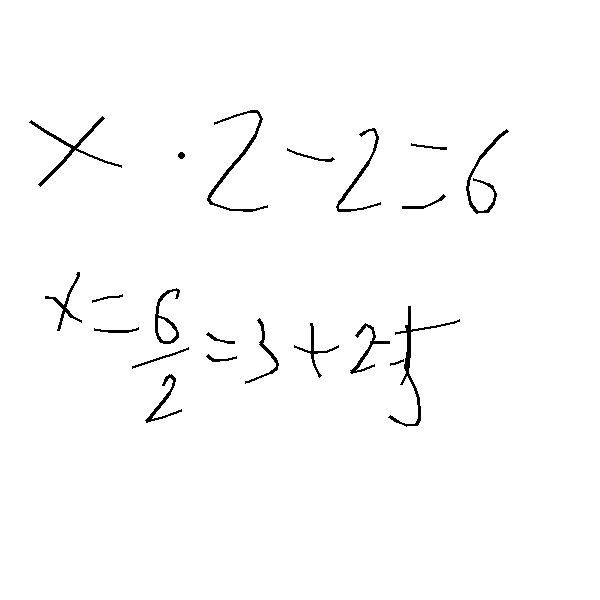 x · 2 - 2 = 6
x = 6/2 = 3 + 2 = 5